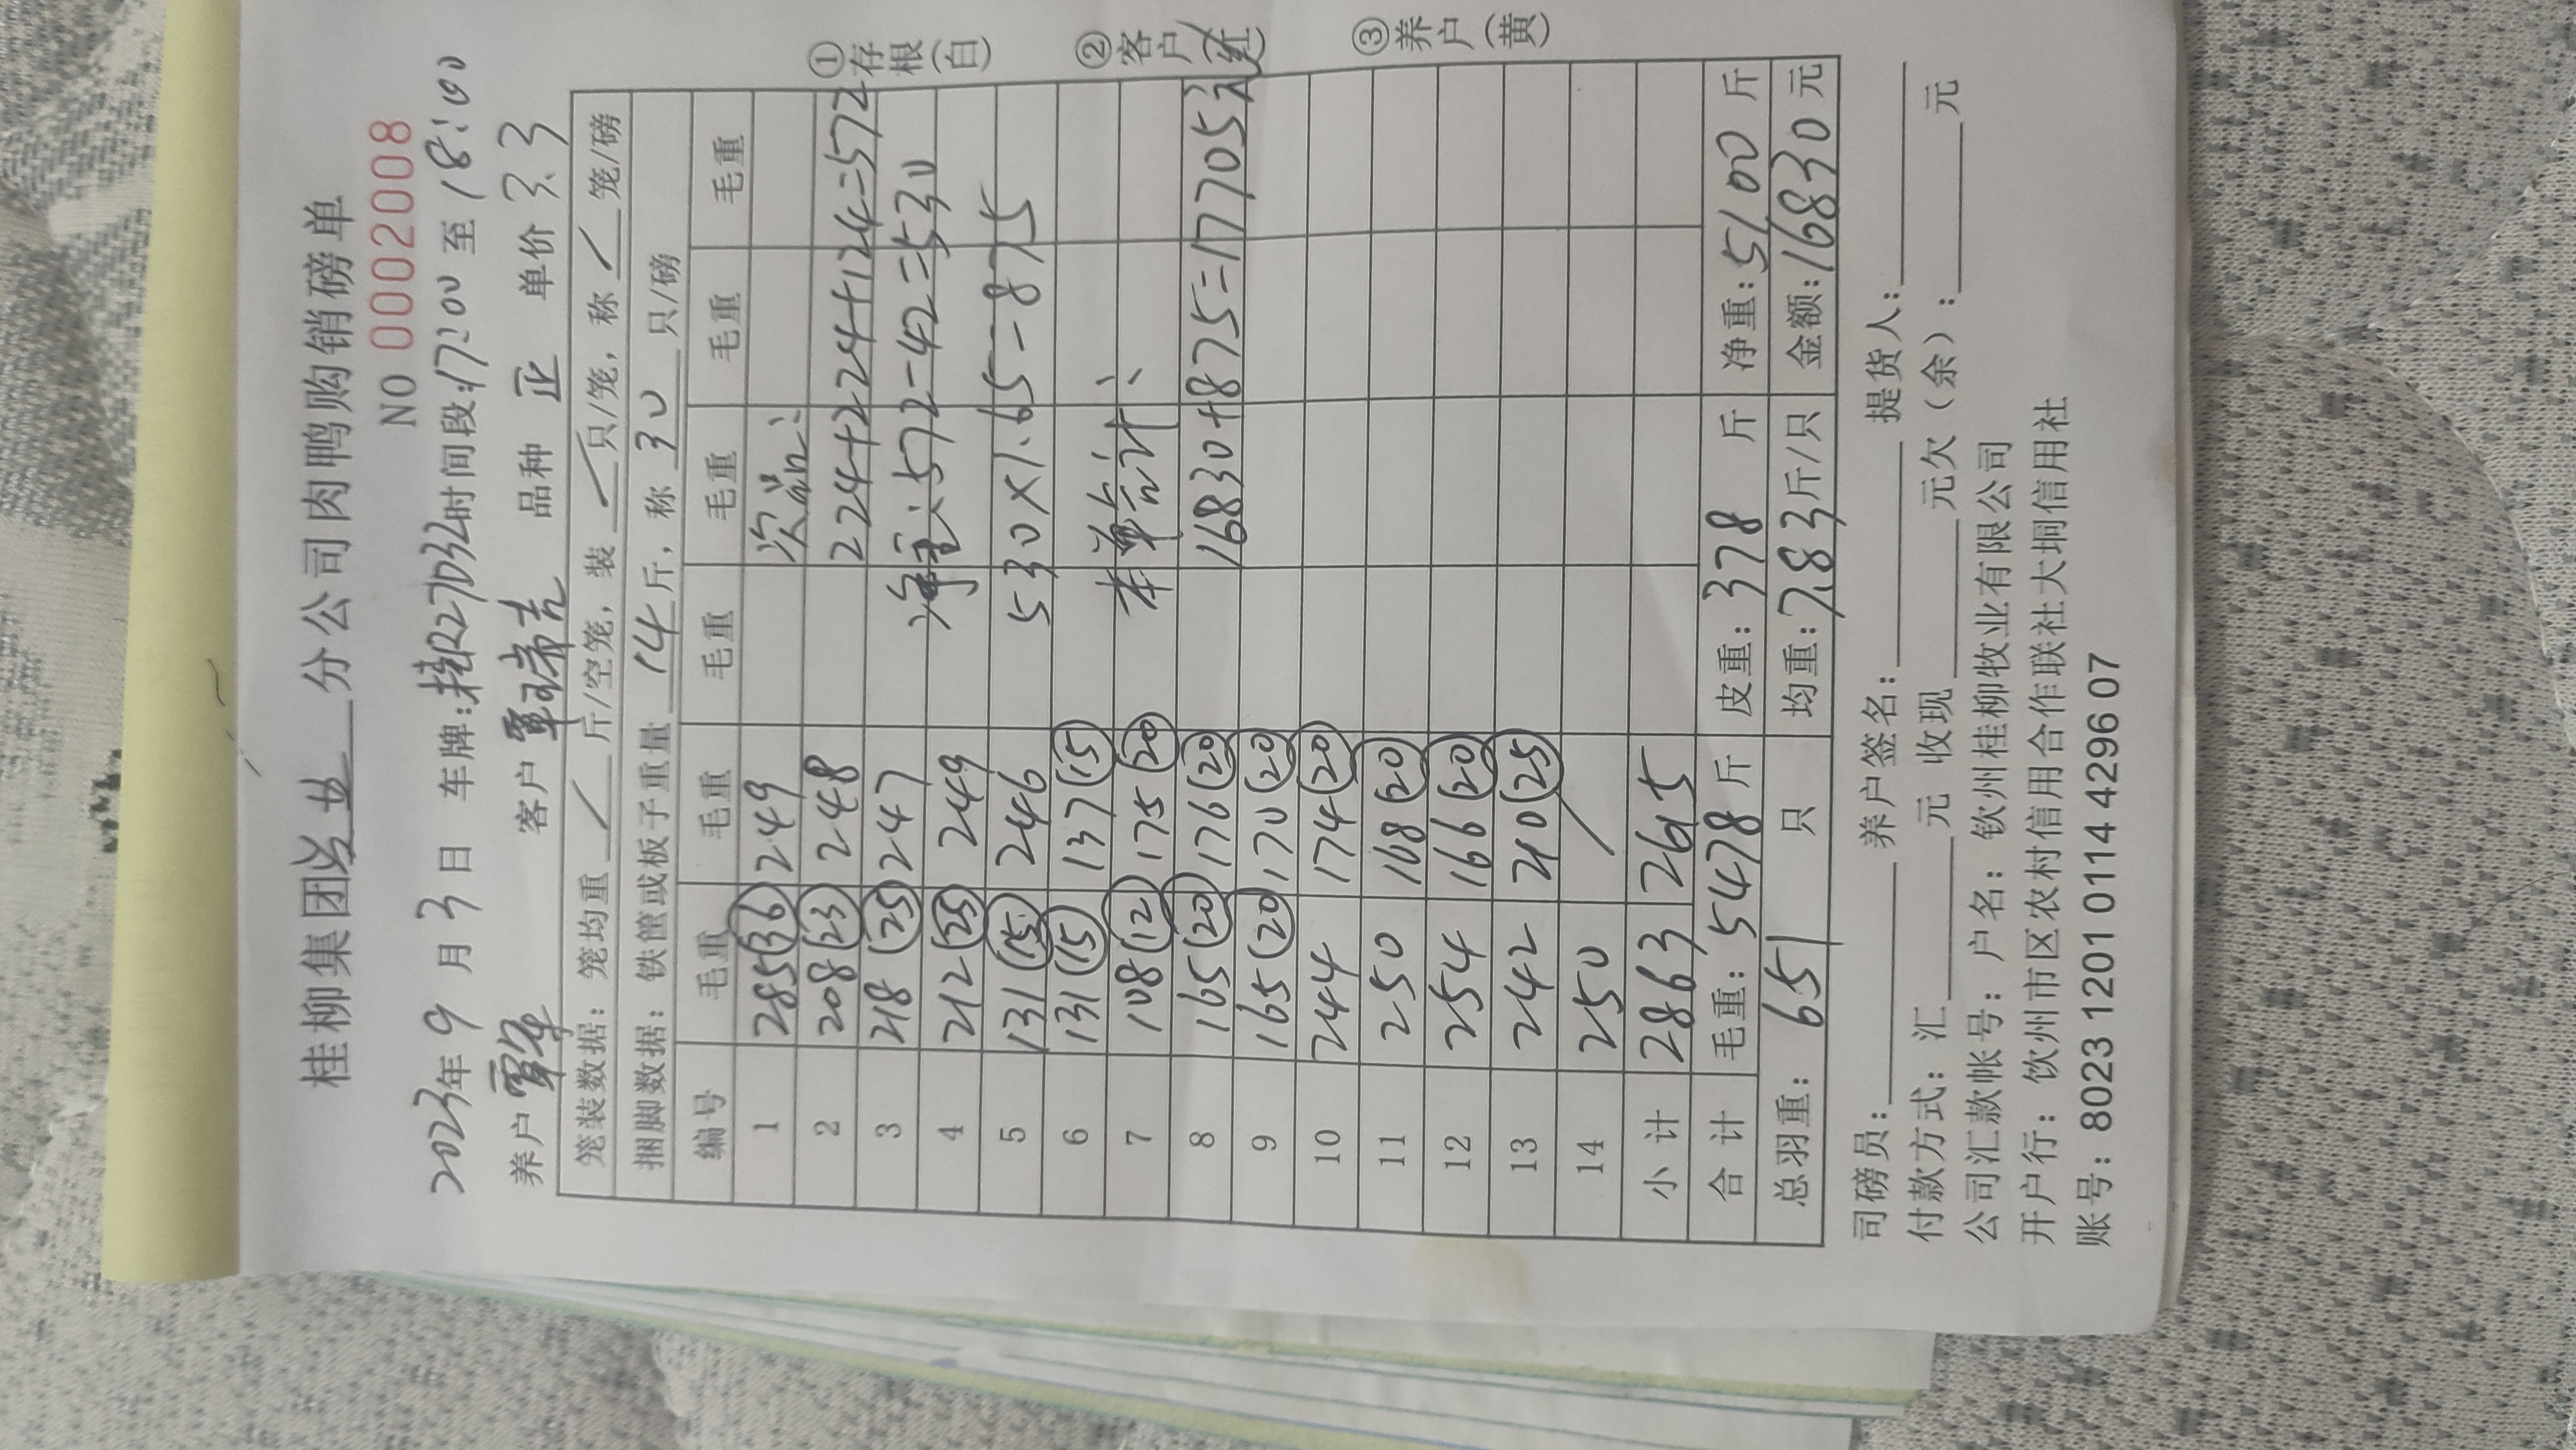 桂柳集团 分公司肉鸭购销磅单
NO 0002008
2023年9月3日 车牌:桂R27D32时间段:17:00至18:00
养户 覃华 客户 覃瑞吉 品种 正 单价 3.3
笼装数据：笼均重 / 斤/空笼，装 / 只/笼，称 / 笼/磅
捆脚数据：铁筐或板子重量 14 斤，称 30 只/磅
编号 毛重 毛重 毛重 毛重 毛重 毛重
1 285(36) 249 次品:
2 208(23) 248 224+224+124=572
3 218(25) 247 净重:572-42=530
4 212(25) 249
5 131(15) 246 530×1.65=875
6 131(15) 137(15)
7 108(12) 175(20) 本单合计:
8 165(20) 176(20) 16830+875=17705元
9 165(20) 170(20)
10 244 174(20)
11 250 168(20)
12 254 166(20)
13 242 210(25)
14 250 /
小计 2863 2615
合计 毛重：5478斤 皮重：378 斤 净重：5100斤
总羽重： 651 只 均重：7.83斤/只 金额：16830元
司磅员： 养户签名： 提货人：
付款方式：汇 元 收现 元欠（余）： 元
公司汇款帐号：户名：钦州桂柳牧业有限公司
开户行：钦州市区农村信用合作联社大垌信用社
账号：8023 1201 0114 4296 07
①存根(白) ②客户(红) ③养户(黄)